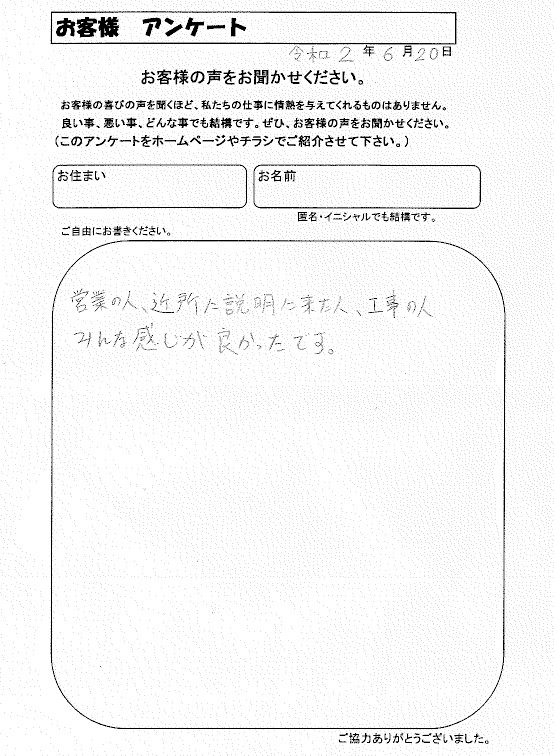 お客様 アンケート
令和2年6月20日
お客様の声をお聞かせください。
お客様の喜びの声を聞くほど、私たちの仕事に情熱を与えてくれるものはありません。
良い事、悪い事、どんな事でも結構です。ぜひ、お客様の声をお聞かせください。
(このアンケートをホームページやチラシでご紹介させて下さい。)
お住まい
お名前
匿名・イニシャルでも結構です。
ご自由にお書きください。
営業の人、近所に説明に来た人、工事の人
みんな感じが良かったです。
ご協力ありがとうございました。